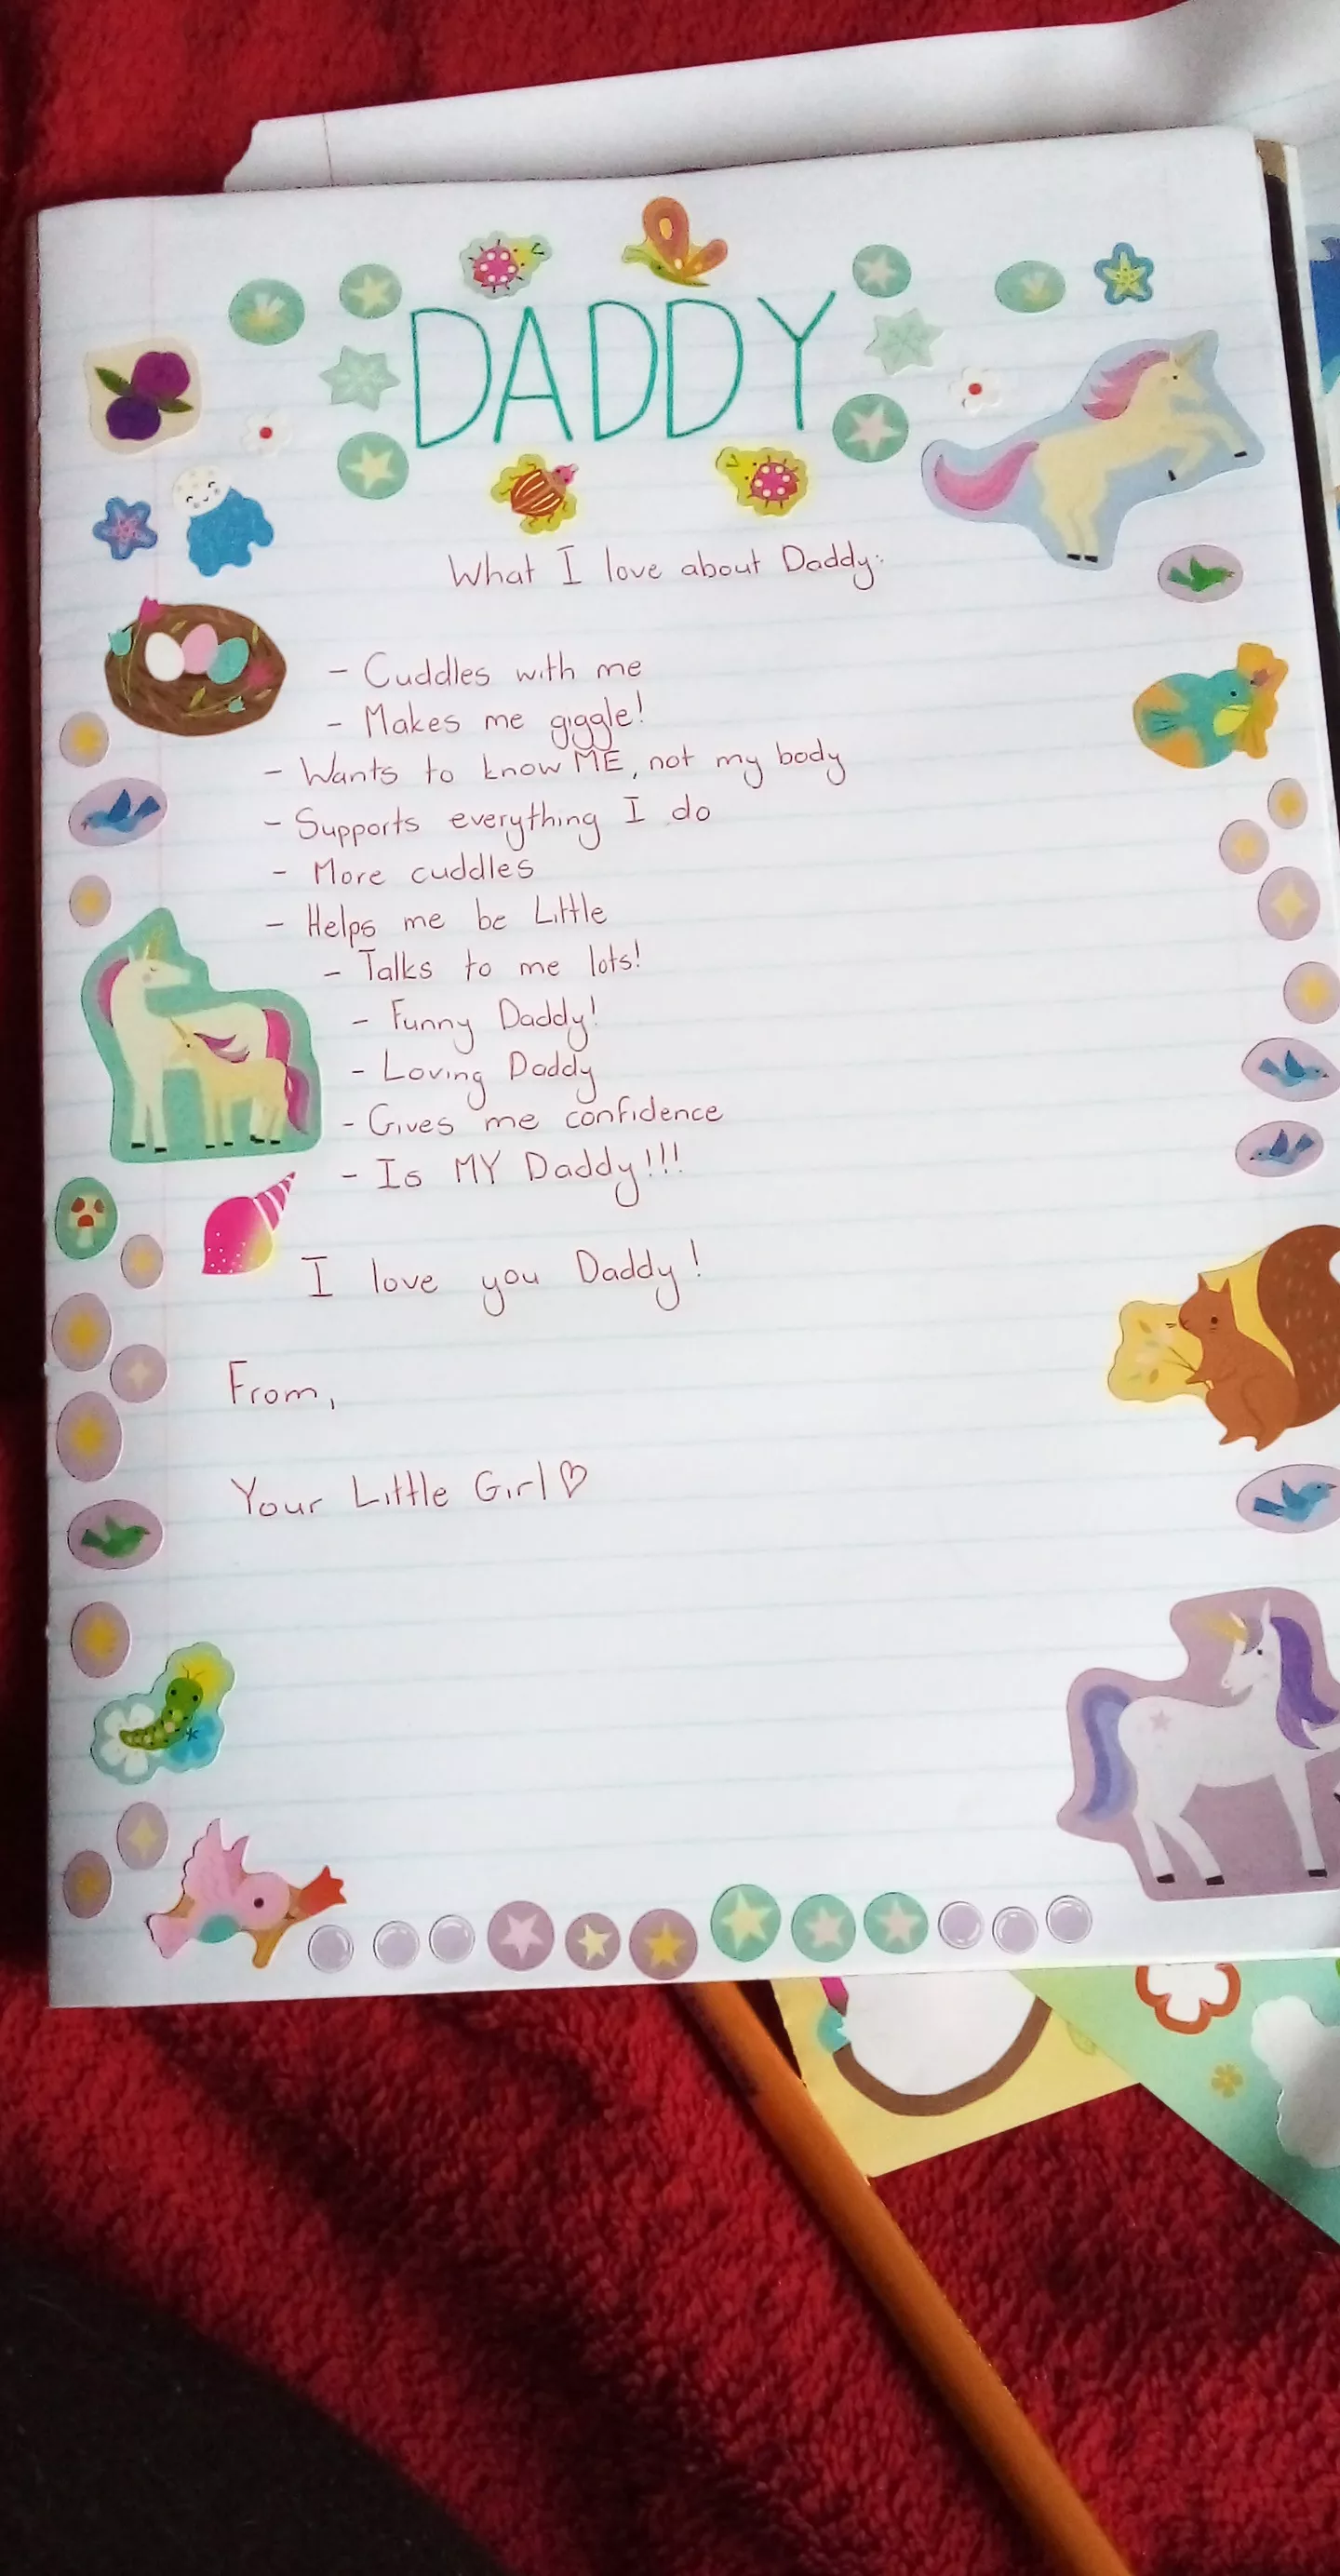 DADDY
What I love about Daddy:
- Cuddles with me
- Makes me giggle!
- Wants to know ME, not my body
- Supports everything I do
- More cuddles
- Helps me be Little
- Talks to me lots!
- Funny Daddy!
- Loving Daddy
- Gives me confidence
- Is MY Daddy!!!
I love you Daddy!
From,
Your Little Girl♡